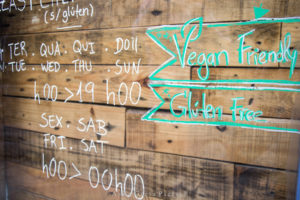 (s/glúten)
TER. QUA. QUI. DOM
TUE. WED. THU SUN
h00 > 19 h00
SEX. SAB
FRI. SAT
h00 > 00h00
Vegan Friendly
Gluten Free